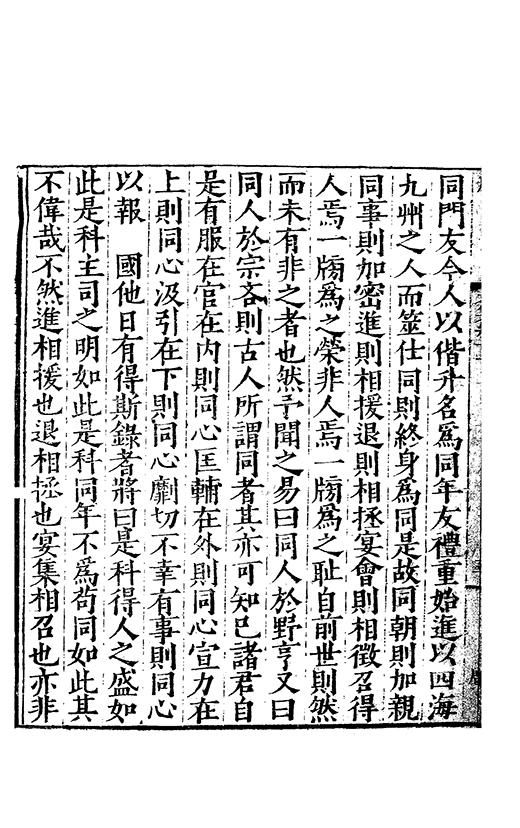 同門友今人以偕升名爲同年友禮重始進以四海
九州之人而筮仕同則終身爲同是故同朝則加親
同事則加密進則相援退則相拯宴會則相徵召得
人焉一牓爲之榮非人焉一牓爲之耻自前世則然
而未有非之者也然予聞之易曰同人於野亨又曰
同人於宗吝則古人所謂同者其亦可知已諸君自
是有服在官在内則同心匡輔在外則同心宣力在
上則同心汲引在下則同心劘切不幸有事則同心
以報　國他日有得斯錄者將曰是科得人之盛如
此是科主司之明如此是科同年不爲苟同如此其
不偉哉不然進相援也退相拯也宴集相召也亦非